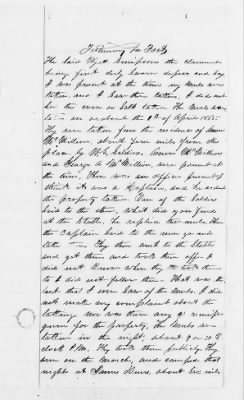 Testimony in Facts
The said Wyat Thompson the claimant
being first duly sworn deposes and says
I was present at the time my mules were
taken, and I saw them taken. I did not
hire the same or sell them The mules were
ta- in or about the 1st of April 1865-
They were taken from the residence of
McMillian, about four miles from the
place by U.S. Soldiers.
and George W McMillian, were present at
the time, There was an officer present I
think it was a Captain, and he ordered
the property taken. One of the Soldiers
said to the others, What did you find
at the Stable, he replied two mules, then
the Captain said to the men go and
take - They then went to the Stable
and got them and took them off. I
did not know where they took them
to I did not follow them. That was the
last that I ever saw of the mules. I did
not make any complaint about the
taking nor was there any receipt
given for the property, the mules were
taken in the night, about 9 or 10 O
clock P.M. They took them publicly they
were on the March, and camped that
night at James about six miles